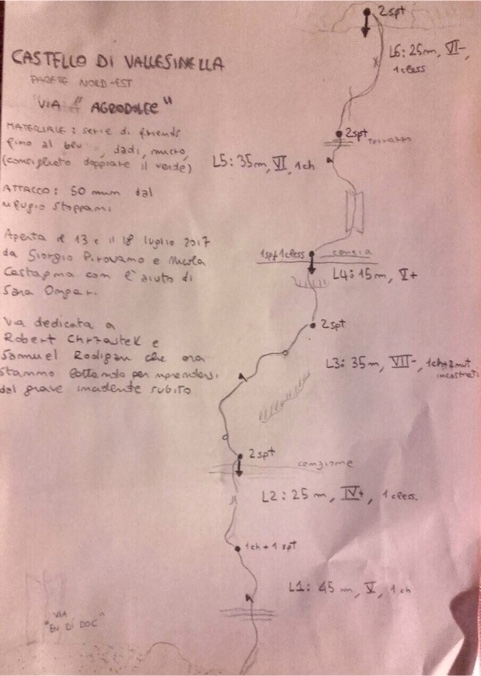 CASTELLO DI VALLESINELLA
PARETE NORD-EST
"VIA "AGRODOLCE"
MATERIALE: serie di friends
fino al blu, dadi, micro,
(consigliato doppiare il verde)
ATTACCO: 50 min dal
rifugio Stoppani
Aperta il 13 e il 18 luglio 2017
da Giorgio Pirovano e
Castagna con l'aiuto di
Sara Ongari.
Via dedicata a
Robert Chrzastek e
Samuel che ora
stanno lottando per riprendersi
dal grave incidente subito
2 spt
L6: 25m, VI-,
1 cless
2 spt
terrazzo
L5: 35m, VI, 1 ch
1 spt 1 cless
cengia
L4: 15m, V+
2 spt
L3: 35m, VII-, 1ch+2 nut
incastrati
2 spt
cengione
L2: 25 m, IV+, 1 cless.
1ch + 1 spt
L1: 45 m, V, 1 ch
VIA
"EN DÌ DOC"